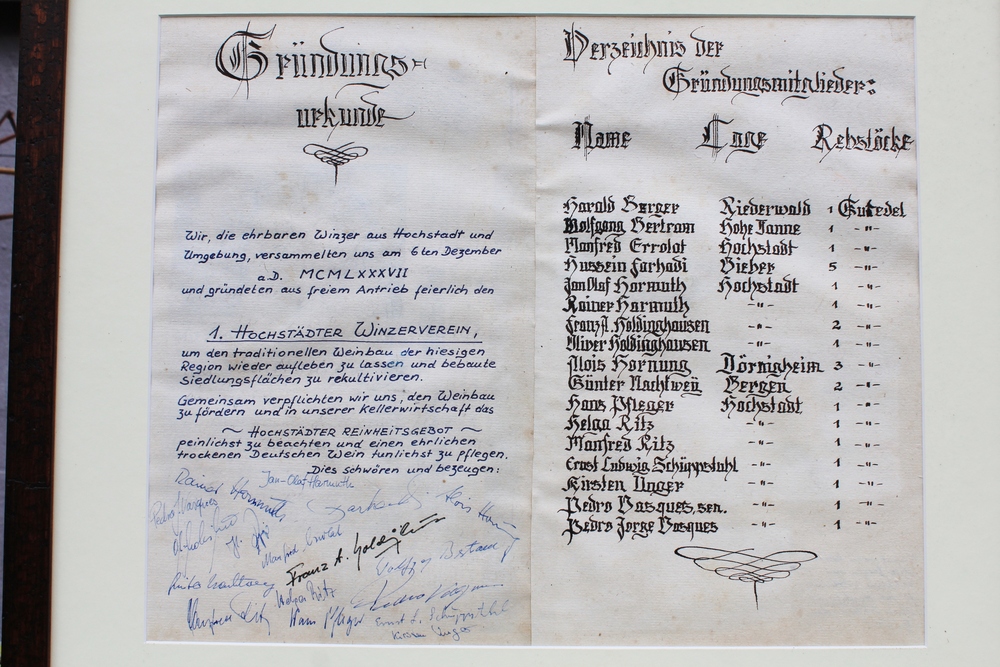 Gründungs=
urkunde
Wir, die ehrbaren Winzer aus Hochstadt und
Umgebung, versammelten uns am 6ten Dezember
a.D. MCMLXXXVII
und gründeten aus freiem Antrieb feierlich den
1. HOCHSTÄDTER WINZERVEREIN,
um den traditionellen Weinbau der hiesigen
Region wieder aufleben zu lassen und bebaute
Siedlungsflächen zu rekultivieren.
Gemeinsam verpflichten wir uns, den Weinbau
zu fördern und in unserer Kellerwirtschaft das
~ HOCHSTÄDTER REINHEITSGEBOT ~
peinlichst zu beachten und einen ehrlichen
trockenen Deutschen Wein tunlichst zu pflegen.
Dies schwören und bezeugen:
Jan-Olaf Harmuth
Rainer Harmuth
Franz A. Holdinghausen
Helga Ritz
Manfred Ritz
Hans Pfleger
Ernst L. Schüppstuhl
Kirsten Unger
Verzeichnis der
Gründungsmitglieder:
Name Lage Rebstöcke
Harald Berger Niederwald 1 Gutedel
Wolfgang Bertram Hohe Tanne 1 -"-
Manfred Errolat Hochstadt 1 -"-
Hussein Farhadi Bieber 5 -"-
Jan Olaf Harmuth Hochstadt 1 -"-
Rainer Harmuth -"- 1 -"-
Franz A. Holdinghausen -"- 2 -"-
Oliver Holdinghausen -"- 1 -"-
Alois Hornung Dörnigheim 3 -"-
Günter Nachtweÿ Bergen 2 -"-
Hans Pfleger Hochstadt 1 -"-
Helga Ritz -"- 1 -"-
Manfred Ritz -"- 1 -"-
Ernst Ludwig Schüppstuhl -"- 1 -"-
Kirsten Unger -"- 1 -"-
Pedro Vasques, sen. -"- 1 -"-
Pedro Jorge Vasques -"- 1 -"-